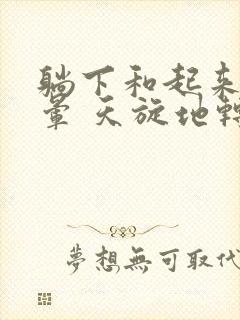 躺下和起来
晕 天旋地转
夢想無可取代